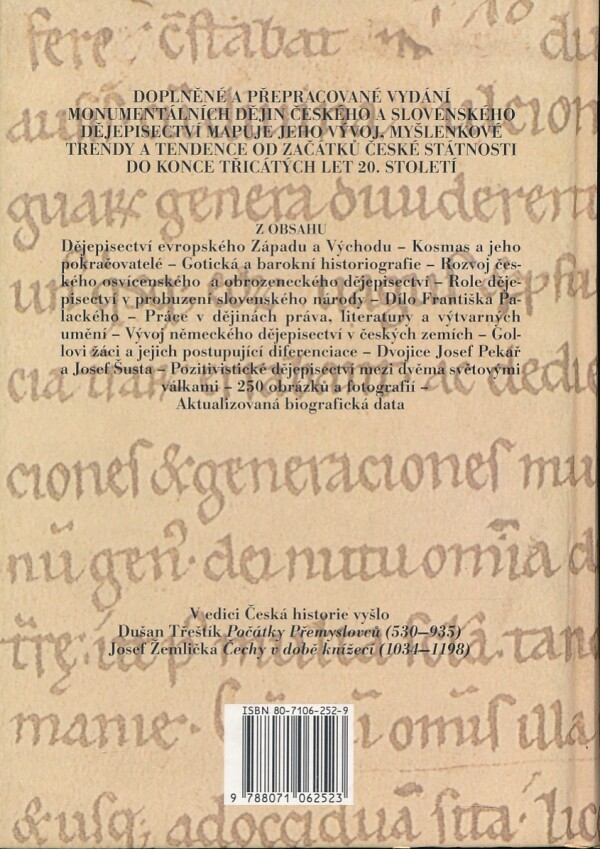 fere cstabat
DOPLNĚNÉ A PŘEPRACOVANÉ VYDÁNÍ
MONUMENTÁLNÍCH DĚJIN ČESKÉHO A SLOVENSKÉHO
DĚJEPISECTVÍ MAPUJE JEHO VÝVOJ, MYŠLENKOVÉ
TRENDY A TENDENCE OD ZAČÁTKŮ ČESKÉ STÁTNOSTI
DO KONCE TŘICÁTÝCH LET 20. STOLETÍ
genera
Z OBSAHU
Dějepisectví evropského Západu a Východu – Kosmas a jeho
pokračovatelé – Gotická a barokní historiografie – Rozvoj čes-
kého osvícenského a obrozeneckého dějepisectví – Role děje-
pisectví v probuzení slovenského národy – Dílo Františka Pa-
lackého – Práce v dějinách práva, literatury a výtvarných
umění – Vývoj německého dějepisectví v českých zemích – Gol-
lovi žáci a jejich postupující diferenciace – Dvojice Josef Pekař
a Josef Šusta – Pozitivistické dějepisectví mezi dvěma světovými
válkami – 250 obrázků a fotografií –
Aktualizovaná biografická data
ciones & generaciones mu
nū gen de nutu omīa d
V edici Česká historie vyšlo
Dušan Třeštík Počátky Přemyslovců (530–935)
Josef Žemlička Čechy v době knížecí (1034–1198)
ISBN 80-7106-252-9
manie illa
9 788071 062523
& usq; adocciduā sita